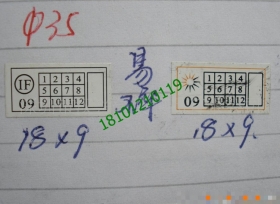 φ35
IF 1 2 3 4
5 6 7 8
09 9 10 11 12
易碎
18101298119
1 2 3 4
5 6 7 8
09 9 10 11 12
18×9
18×9.